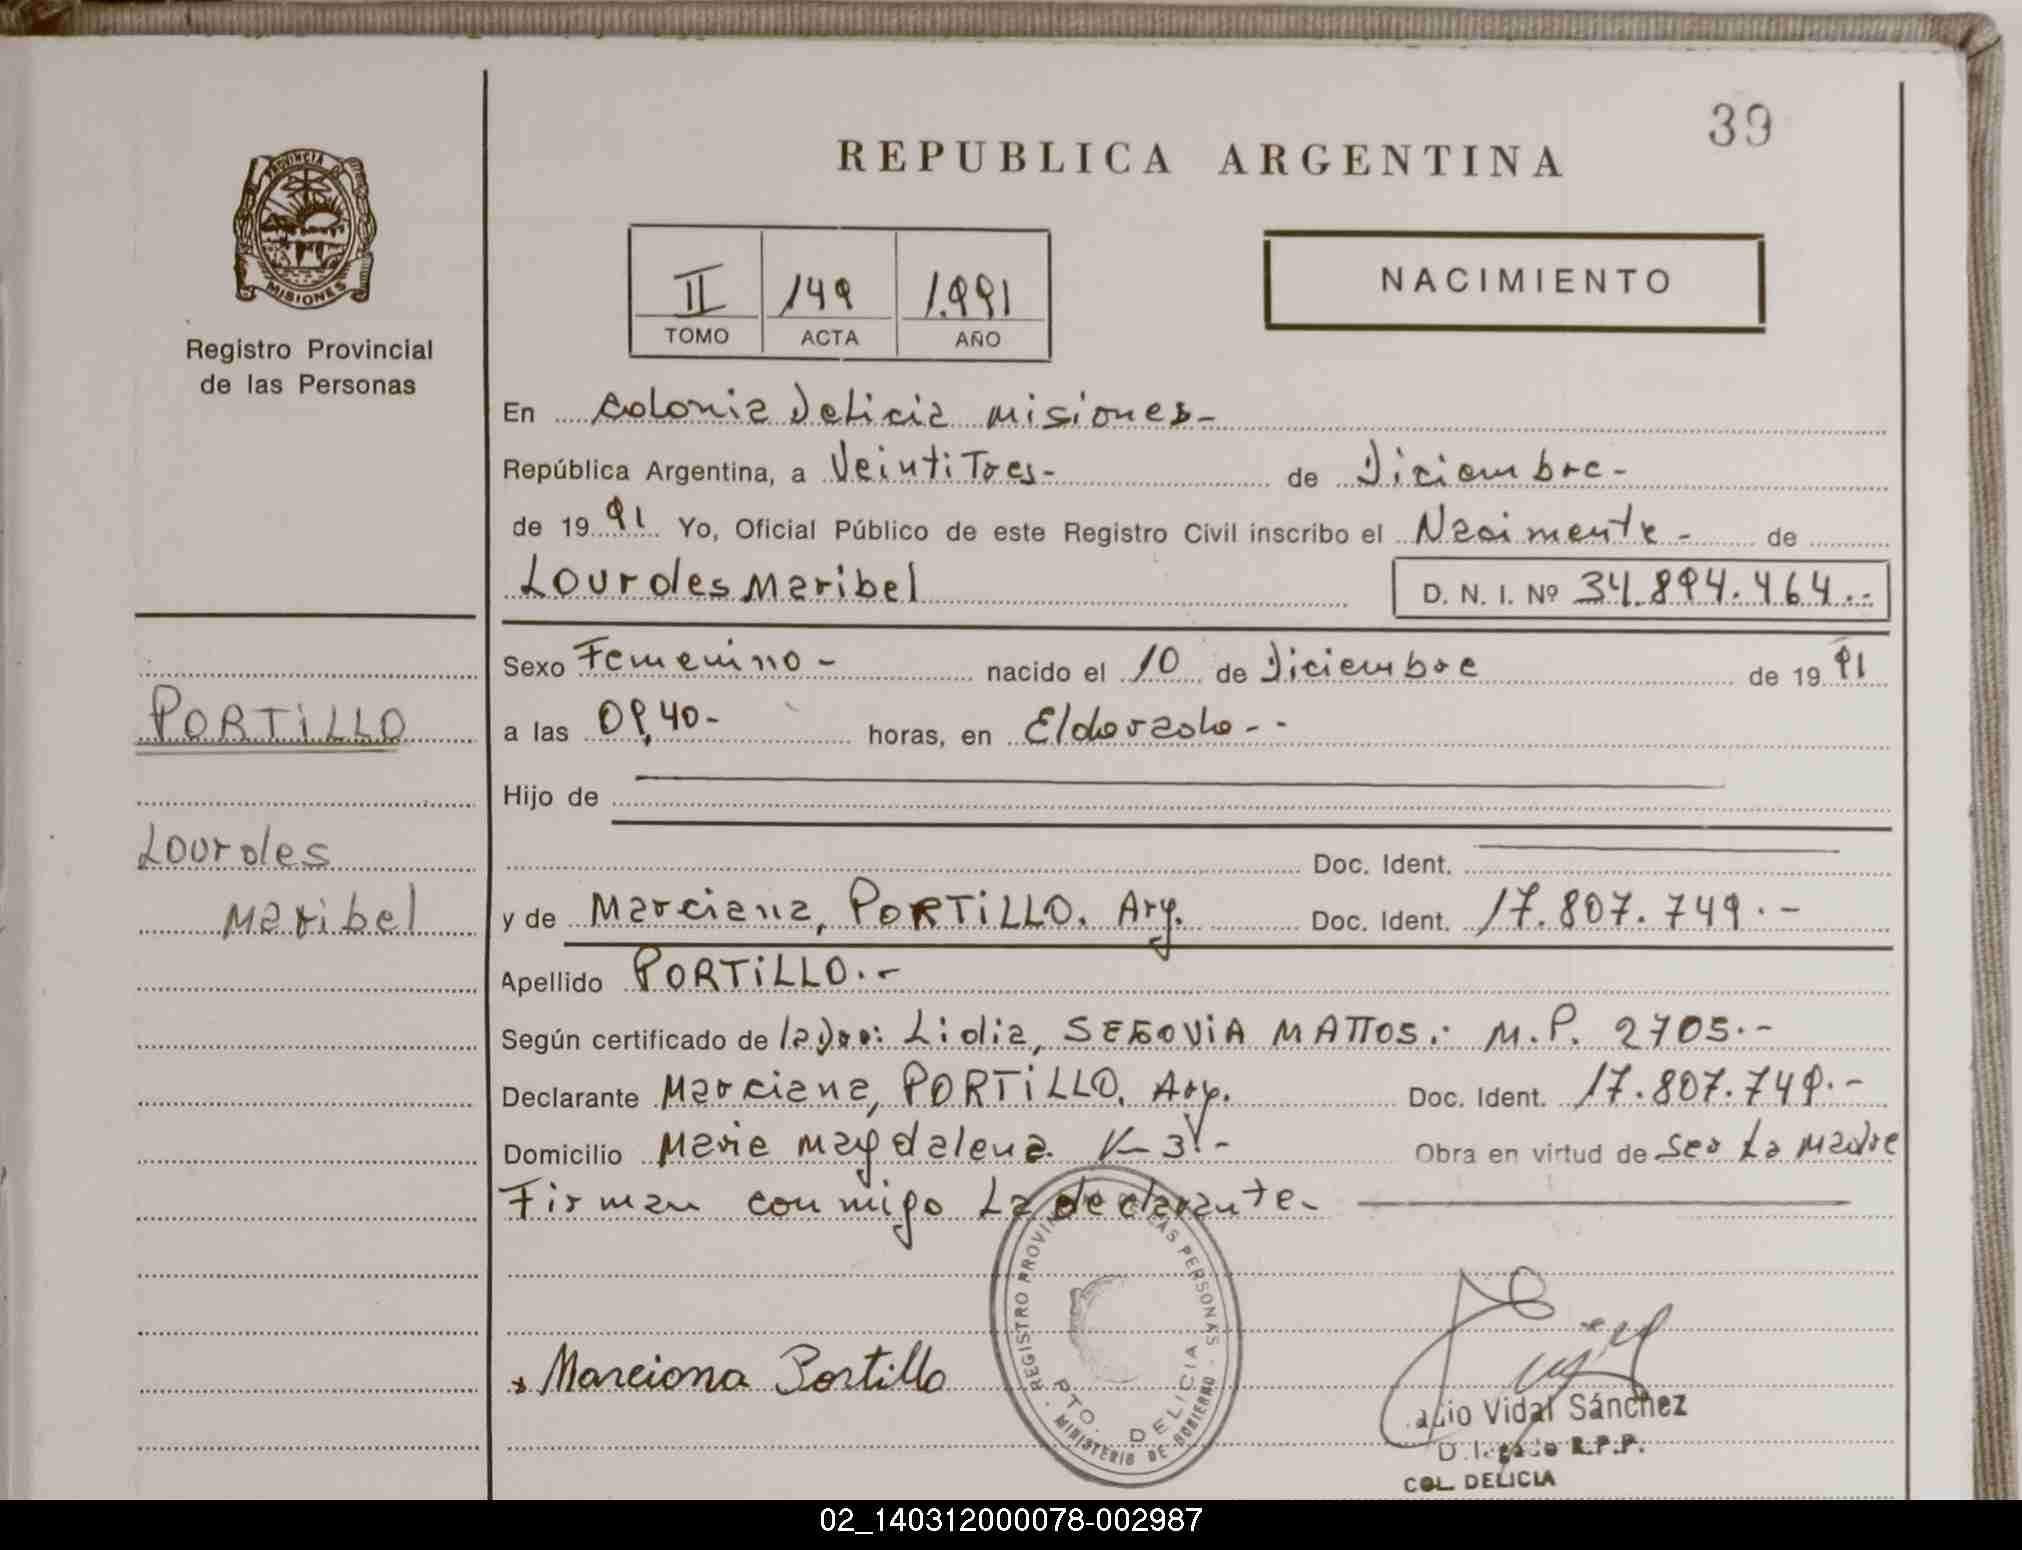 39
REPUBLICA ARGENTINA
PROVINCIA
MISIONES
Registro Provincial
de las Personas
II 149 1.991
TOMO ACTA AÑO
NACIMIENTO
En Colonia Delicia Misiones-
República Argentina, a VeintiTres- de Diciembre-
de 19 91 Yo, Oficial Público de este Registro Civil inscribo el Nacimente - de
Lourdes Maribel D. N. I. Nº 34.894.464.--
Sexo Femenino- nacido el 10 de Diciembre de 19 91
a las 09,40- horas, en Eldorado--
Hijo de
Doc. Ident.
y de Marciana, PORTiLLO. Arg. Doc. Ident. 17.807.749.-
Apellido PORTiLLO.-
Según certificado de la Dra: Lidia, SEGOViA MATTOS.: M.P. 2705.-
Declarante Marciana, PORTiLLO. Arg. Doc. Ident. 17.807.749.-
Domicilio Maria Magdalena K-31- Obra en virtud de ser La Madre
Firman conmigo La declarante-
PORTiLLO
Lourdes
Maribel
Marciana Portillo
REGISTRO LAS PERSONAS
PTO. DELICIA
MINISTERIO DE GOBIERNO
Vidal Sánchez
R.P.P.
COL. DELICIA
02_140312000078-002987